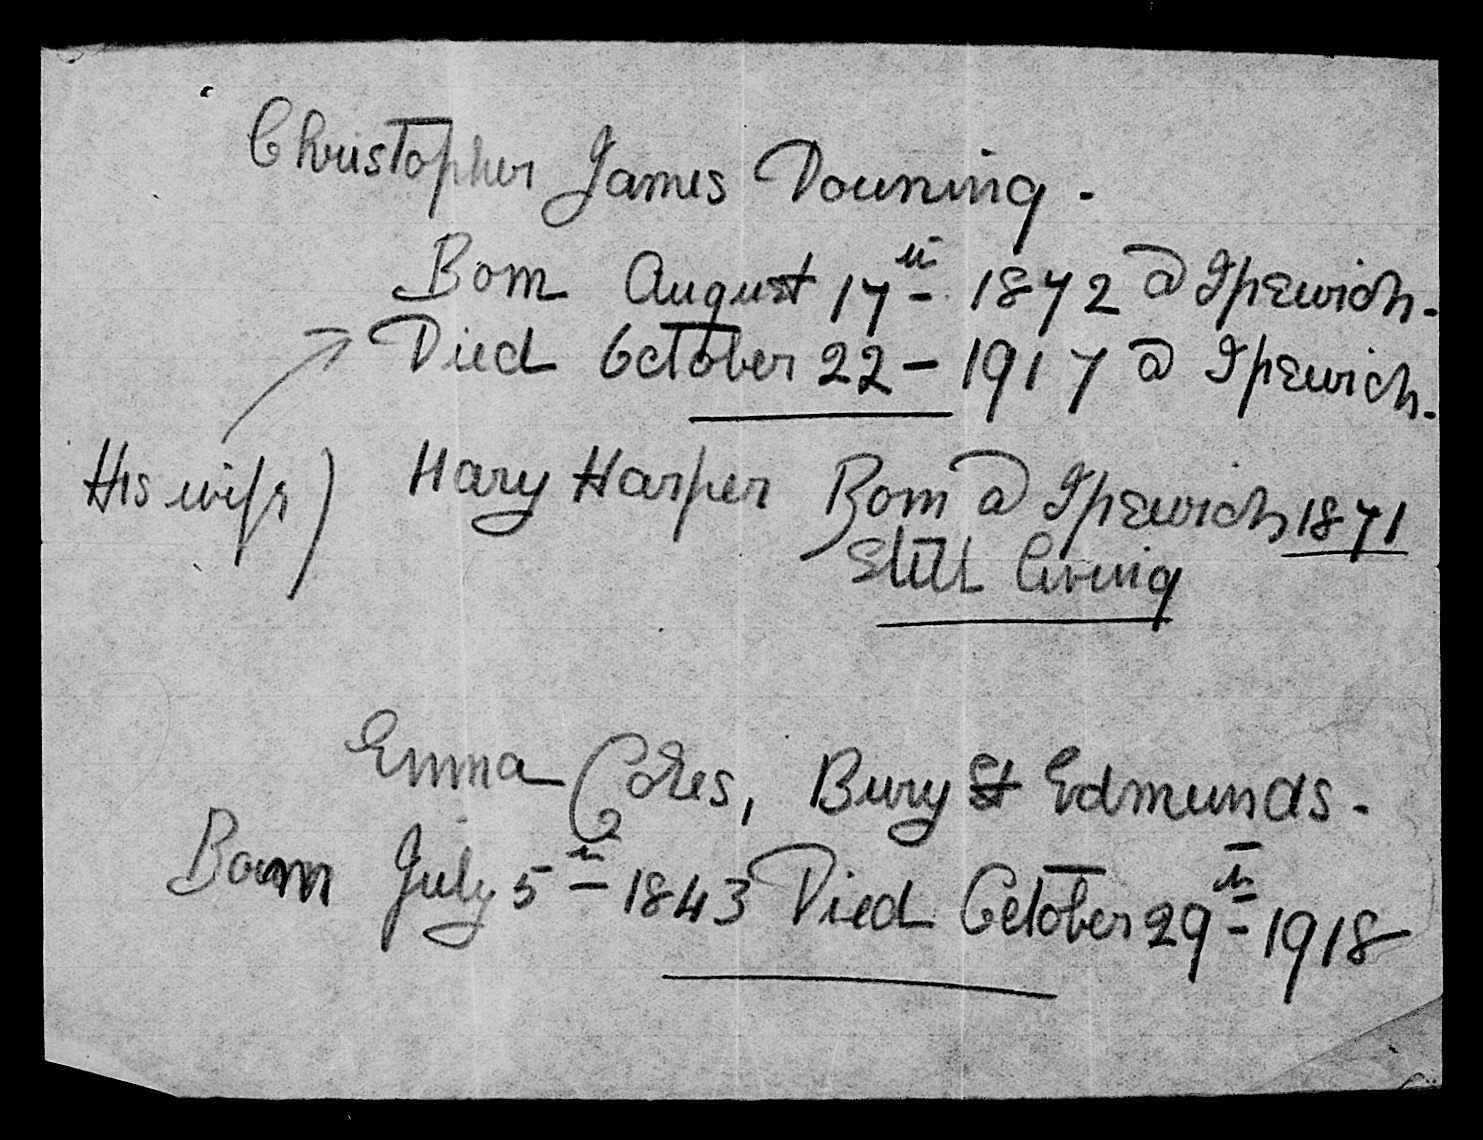 Christopher James Downing.
Born August 17th 1872 @ Ipswich.
Died October 22 - 1917 @ Ipswich.
His wife) Mary Harper Born @ Ipswich 1871
Still living
Emma Coles, Bury St Edmunds.
Born July 5th - 1843 Died October 29th - 1918